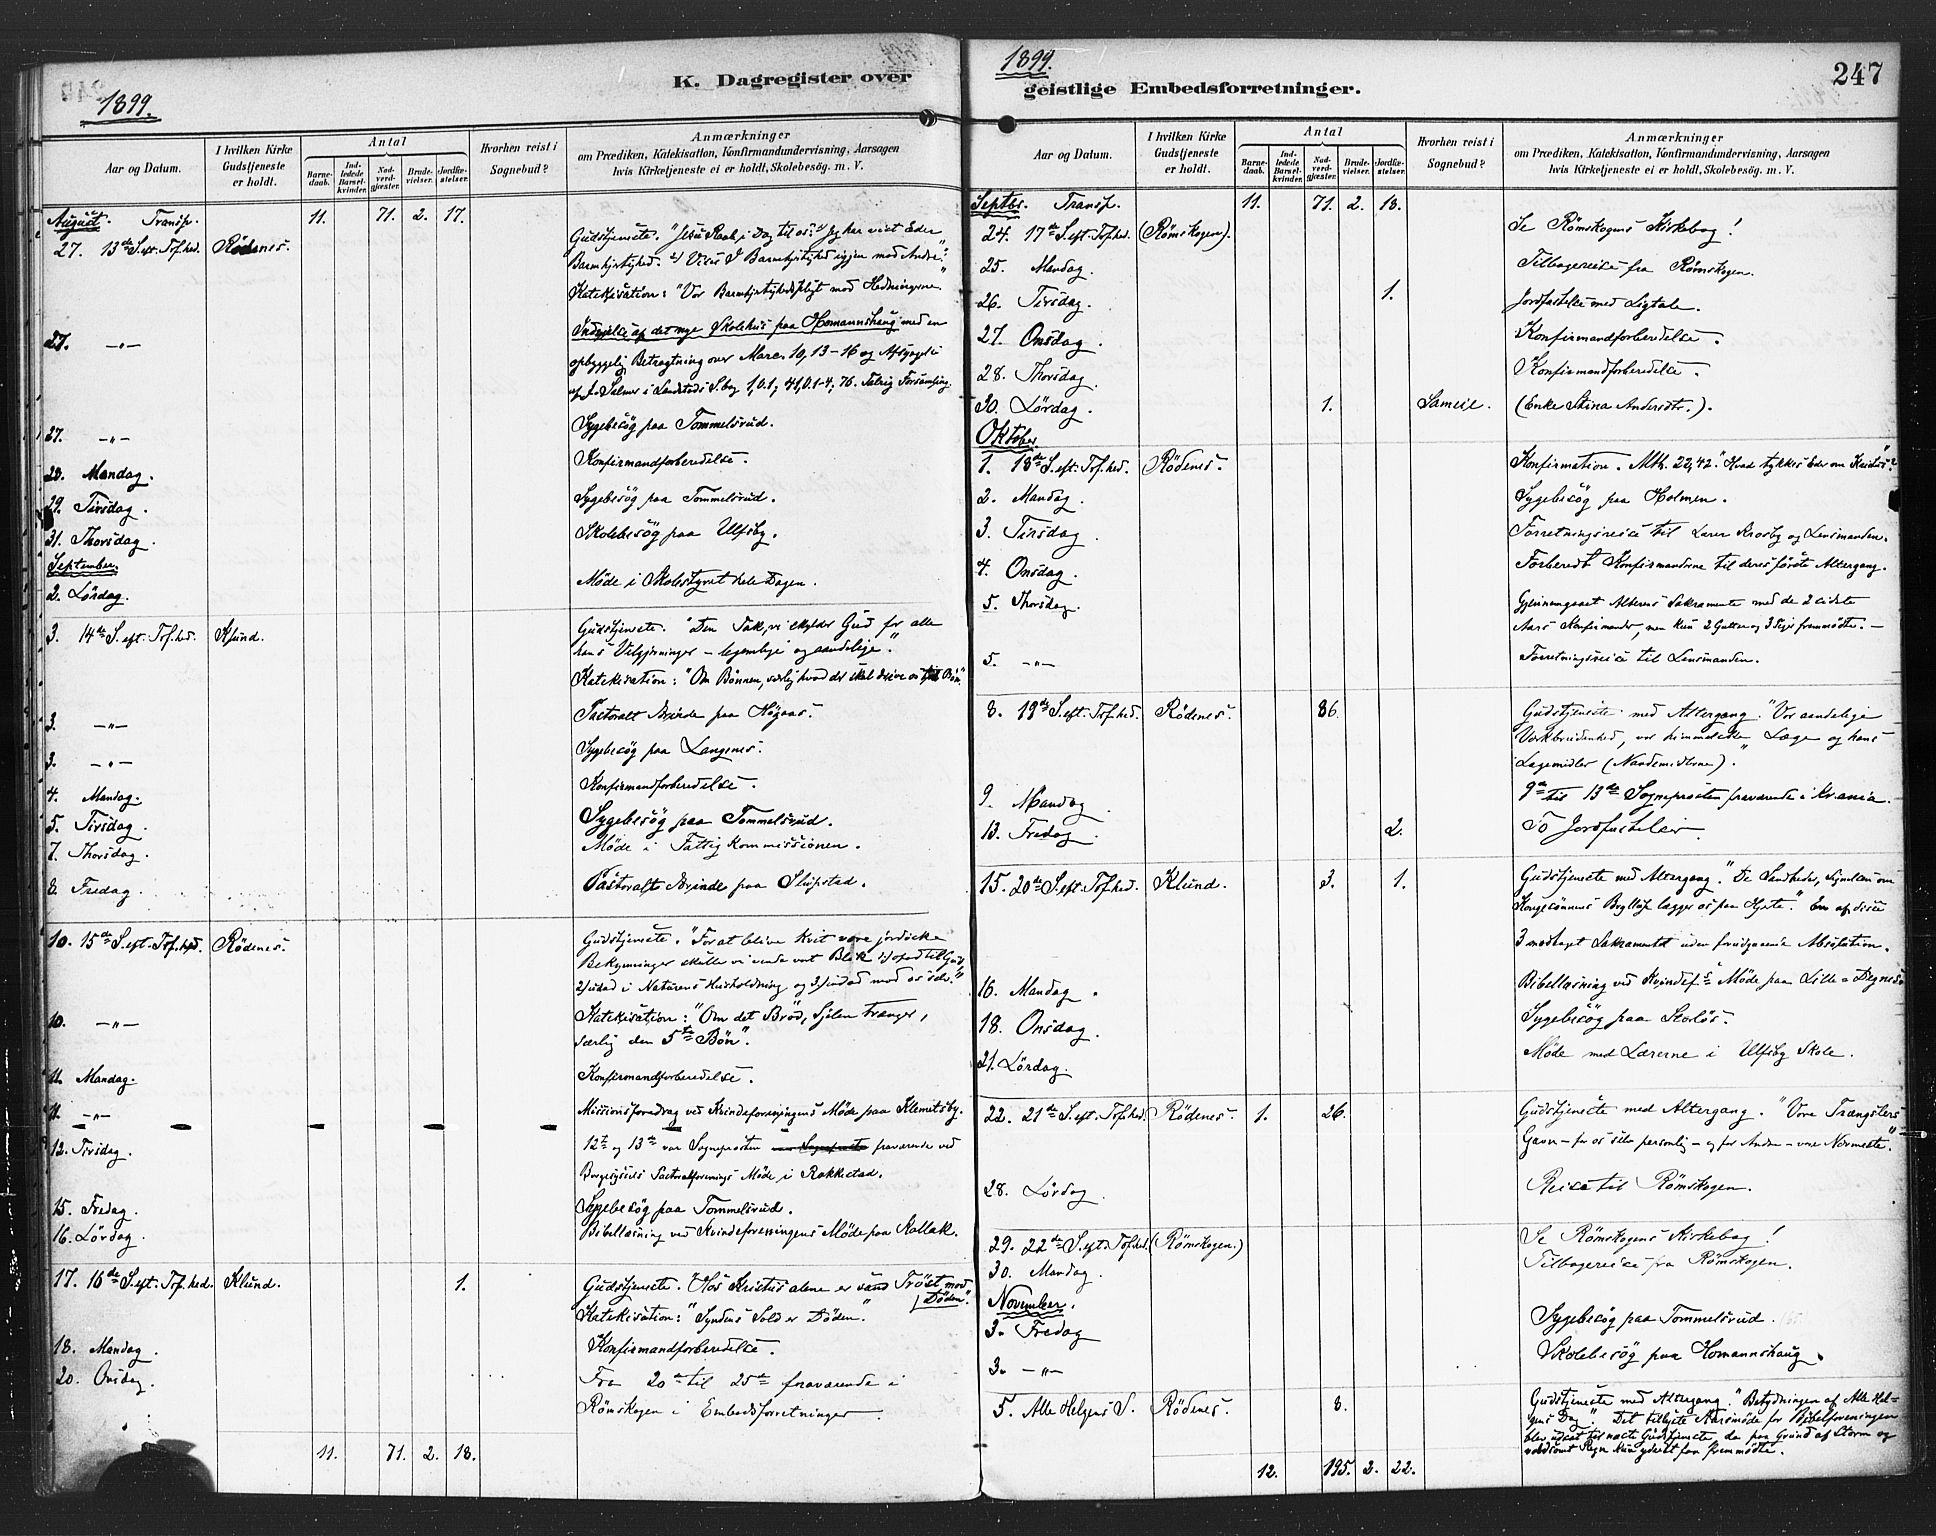 K. Dagregister over
1899.
Aar og Datum.
I hvilken Kirke Gudstjeneste er holdt.
Antal
Barnedaab.
Indledede Barselkvinder.
Nadverdgjæster.
Brudevielser.
Jordfæstelser.
Hvorhen reist i Sognebud?
Anmærkninger
om Prædiken, Katekisation, Konfirmandundervisning, Aarsagen
hvis Kirketjeneste ei er holdt, Skolebesøg. m. V.
August. Transp. 11. 71. 2. 17.
27. 13de S. eft. Tref.hed. Rödenes. Gudstjeneste. "Jesu Raab i Dag til os: 1) Jeg har vist Eder
Barmhjertighed. 2) Viis I Barmhjertighed igjen mod Andre".
Katekisation: "Vor Barmhjertighedspligt mod Hedningerne"
27. —"— Indvielse af det nye Skolehus paa Homannshaug med en
opbyggelig Betragtning over Marc. 10, 13-16 og Afsyngelse
af Salmer i Landstads S.bog Talrig Forsamling.
27. —"— Sygebesög paa Tommelsrud.
28. Mandag. Konfirmandforberedelse.
29. Tirsdag. Sygebesög paa Tommelsrud.
31. Thorsdag. Skolebesög paa Ulfsby.
September.
2. Lördag. Möde i Skolestyret hele Dagen.
3. 14de S. eft. Tref.hed. Klund. Gudstjeneste. "Den Tak, vi skylder Gud for alle
hans Velgjerninger – legemlige og aandelige".
Katekisation: "Om Bönnen, særlig hvad der skal drive os til Bön".
3. —"— Pastoralt Ærinde paa Högaas.
3. —"— Sygebesög paa Langenes.
4. Mandag. Konfirmandforberedelse.
5. Tirsdag. Sygebesög paa Tommelsrud.
7. Thorsdag. Möde i Fattigkommissionen.
8. Fredag. Pastoralt Ærinde paa Slupstad.
10. 15de S. eft. Tref.hed. Rödenes. Gudstjeneste. "For at blive kvit vore jordiske
Bekymringer skulle vi vende vort Blik 1) opad til Gud,
2) udad i Naturens Husholdning og 3) indad mod os selv."
10. —"— Katekisation: "Om det Bröd, Sjelen trænger,
særlig den 5te Bön".
11. Mandag. Konfirmandforberedelse.
11. —"— Missionsforedrag ved Kvindeforeningens Möde paa Klemetsby.
12. Tirsdag. 12te og 13de var Sognepresten fraværende ved
Borgesyssels Pastoralforenings Möde i Rakkestad.
15. Fredag. Sygebesög paa Tommelsrud.
16. Lördag. Bibellæsning ved Kvindeforeningens Möde paa Kollak.
17. 16de S. eft. Tref.hed. Klund. 1. Gudstjeneste. "Hos Kristus alene er sand Tröst mod
Döden".
Katekisation: "Syndens Sold er Döden".
18. Mandag. Konfirmandforberedelse.
20. Onsdag. Fra 20de til 25de fraværende i
Römskogen i Embedsforretninger.
11. 71. 2. 18.
1899.
geistlige Embedsforretninger.
247
Aar og Datum.
I hvilken Kirke Gudstjeneste er holdt.
Antal
Barnedaab.
Indledede Barselkvinder.
Nadverdgjæster.
Brudevielser.
Jordfæstelser.
Hvorhen reist i Sognebud?
Anmærkninger
om Prædiken, Katekisation, Konfirmandundervisning, Aarsagen
hvis Kirketjeneste ei er holdt, Skolebesøg. m. V.
Septbr. Transp. 11. 71. 2. 18.
24. 17de S. eft. Tref.hed. (Römskogen). Se Römskogens Kirkebog!
25. Mandag. Tilbagereise fra Römskogen.
26. Tirsdag. 1. Jordfæstelse med Ligtale.
27. Onsdag. Konfirmandforberedelse.
28. Thorsdag. Konfirmandforberedelse.
30. Lördag. 1. Sameie. (Enke Stina Andersdtr.).
Oktober.
1. 18de S. eft. Tref.hed. Rödenes. Konfirmation. Mth. 22,42. "Hvad tykkes Eder om Kristus"?
2. Mandag. Sygebesög paa Holmen.
3. Tirsdag. Forretningsreise til Lærer Krosby og Lensmanden.
4. Onsdag. Forberedt Konfirmanderne til deres förste Altergang.
5. Thorsdag. Gjennemgaaet Alterens Sakramente med de 2 sidste
Aars Konfirmander, men kun 2 Gutter og 3 Piger fremmödte. —
5. —"— Forretningsreise til Lensmanden.
8. 19de S. eft. Tref.hed. Rödenes. 86. Gudstjeneste med Altergang. "Vor aandelige
Værkbrudenhed, vor himmelske Læge og hans
Lægemidler (Naademidlerne).
9. Mandag. 9de til 13de Sognepresten fraværende i Kr.ania.
13. Fredag. 2. To Jordfæstelser.
15. 20de S. eft. Tref.hed. Klund. 3. 1. Gudstjeneste med Altergang. "De Sandheder, Lignelsen om
Kongesönnens Bryllup lægger os paa Hjerte". En af disse
3 modtaget Sakramentet uden forudgaaende Absolution.
16. Mandag. Bibellæsning ved Kvindef.s Möde paa Lille-Degnes.
18. Onsdag. Sygebesög paa
21. Lördag. Möde med Lærerne i Ulfsby Skole.
22. 21de S. eft. Tref.hed. Rödenes. 1. 26. Gudstjeneste med Altergang. "Vore Trængslers
Gavn – for os selv personlig – og for Andre – vore Nærmeste".
28. Lördag. Reise til Römskogen.
29. 22de S. eft. Tref.hed. (Römskogen.) Se Römskogens Kirkebog!
30. Mandag. Tilbagereise fra Römskogen.
November.
3. Fredag Sygebesög paa Tommelsrud.
3. —"— Skolebesög paa Homannshaug.
5. Alle Helgens S. Rödenes. 8. Gudstjeneste med Altergang. "Betydningen af Alle Helgens
Dag". Det tillyste Aarsmöde for Bibelforeningen
blev udsat til næste Gudstjeneste, da paa Grund af Storm og
voldsomt Regn kun yderst faa fremmödte.
12. 195. 2. 22.